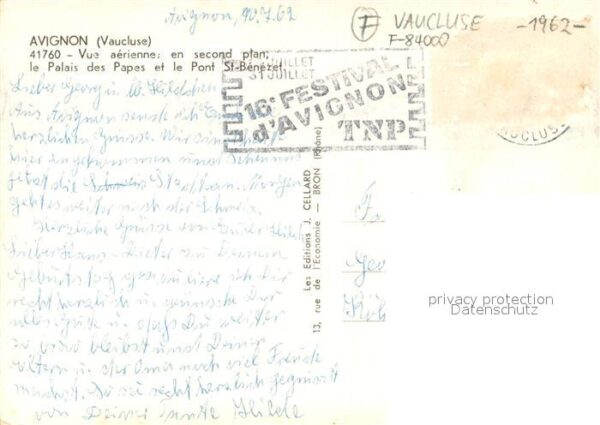 Avignon, 10.7.62
F VAUCLUSE -1962-
F-84000
AVIGNON (Vaucluse)
41760 - Vue aérienne; en second plan,
le Palais des Papes et le Pont St-Bénézet
JUILLET
31 JUILLET
16e FESTIVAL
d'AVIGNON
TNP
VAUCLUSE
Lieber Georg u.
Aus Avignon sende ich
herzlichen Grüsse. Wir sind
hier angekommen und
jetzt die Stadt an. Morgen
geht es weiter nach der Schweiz.
Herzliche Grüsse von Eurer
Lieber Hans-Dieter zu Deinem
Geburtstag gratuliere ich Dir
recht herzlich u. wünsche Dir
alles Gute u. dass Du weiter
so brav bleibst und Deinen
Eltern u. der Oma noch viel Freude
machst. Sei recht herzlich gegrüsst
von Deiner Tante Hilde
Les Editions J. CELLARD
13, rue de l'Economie — BRON (Rhône)
F
Geo
Köl
privacy protection
Datenschutz